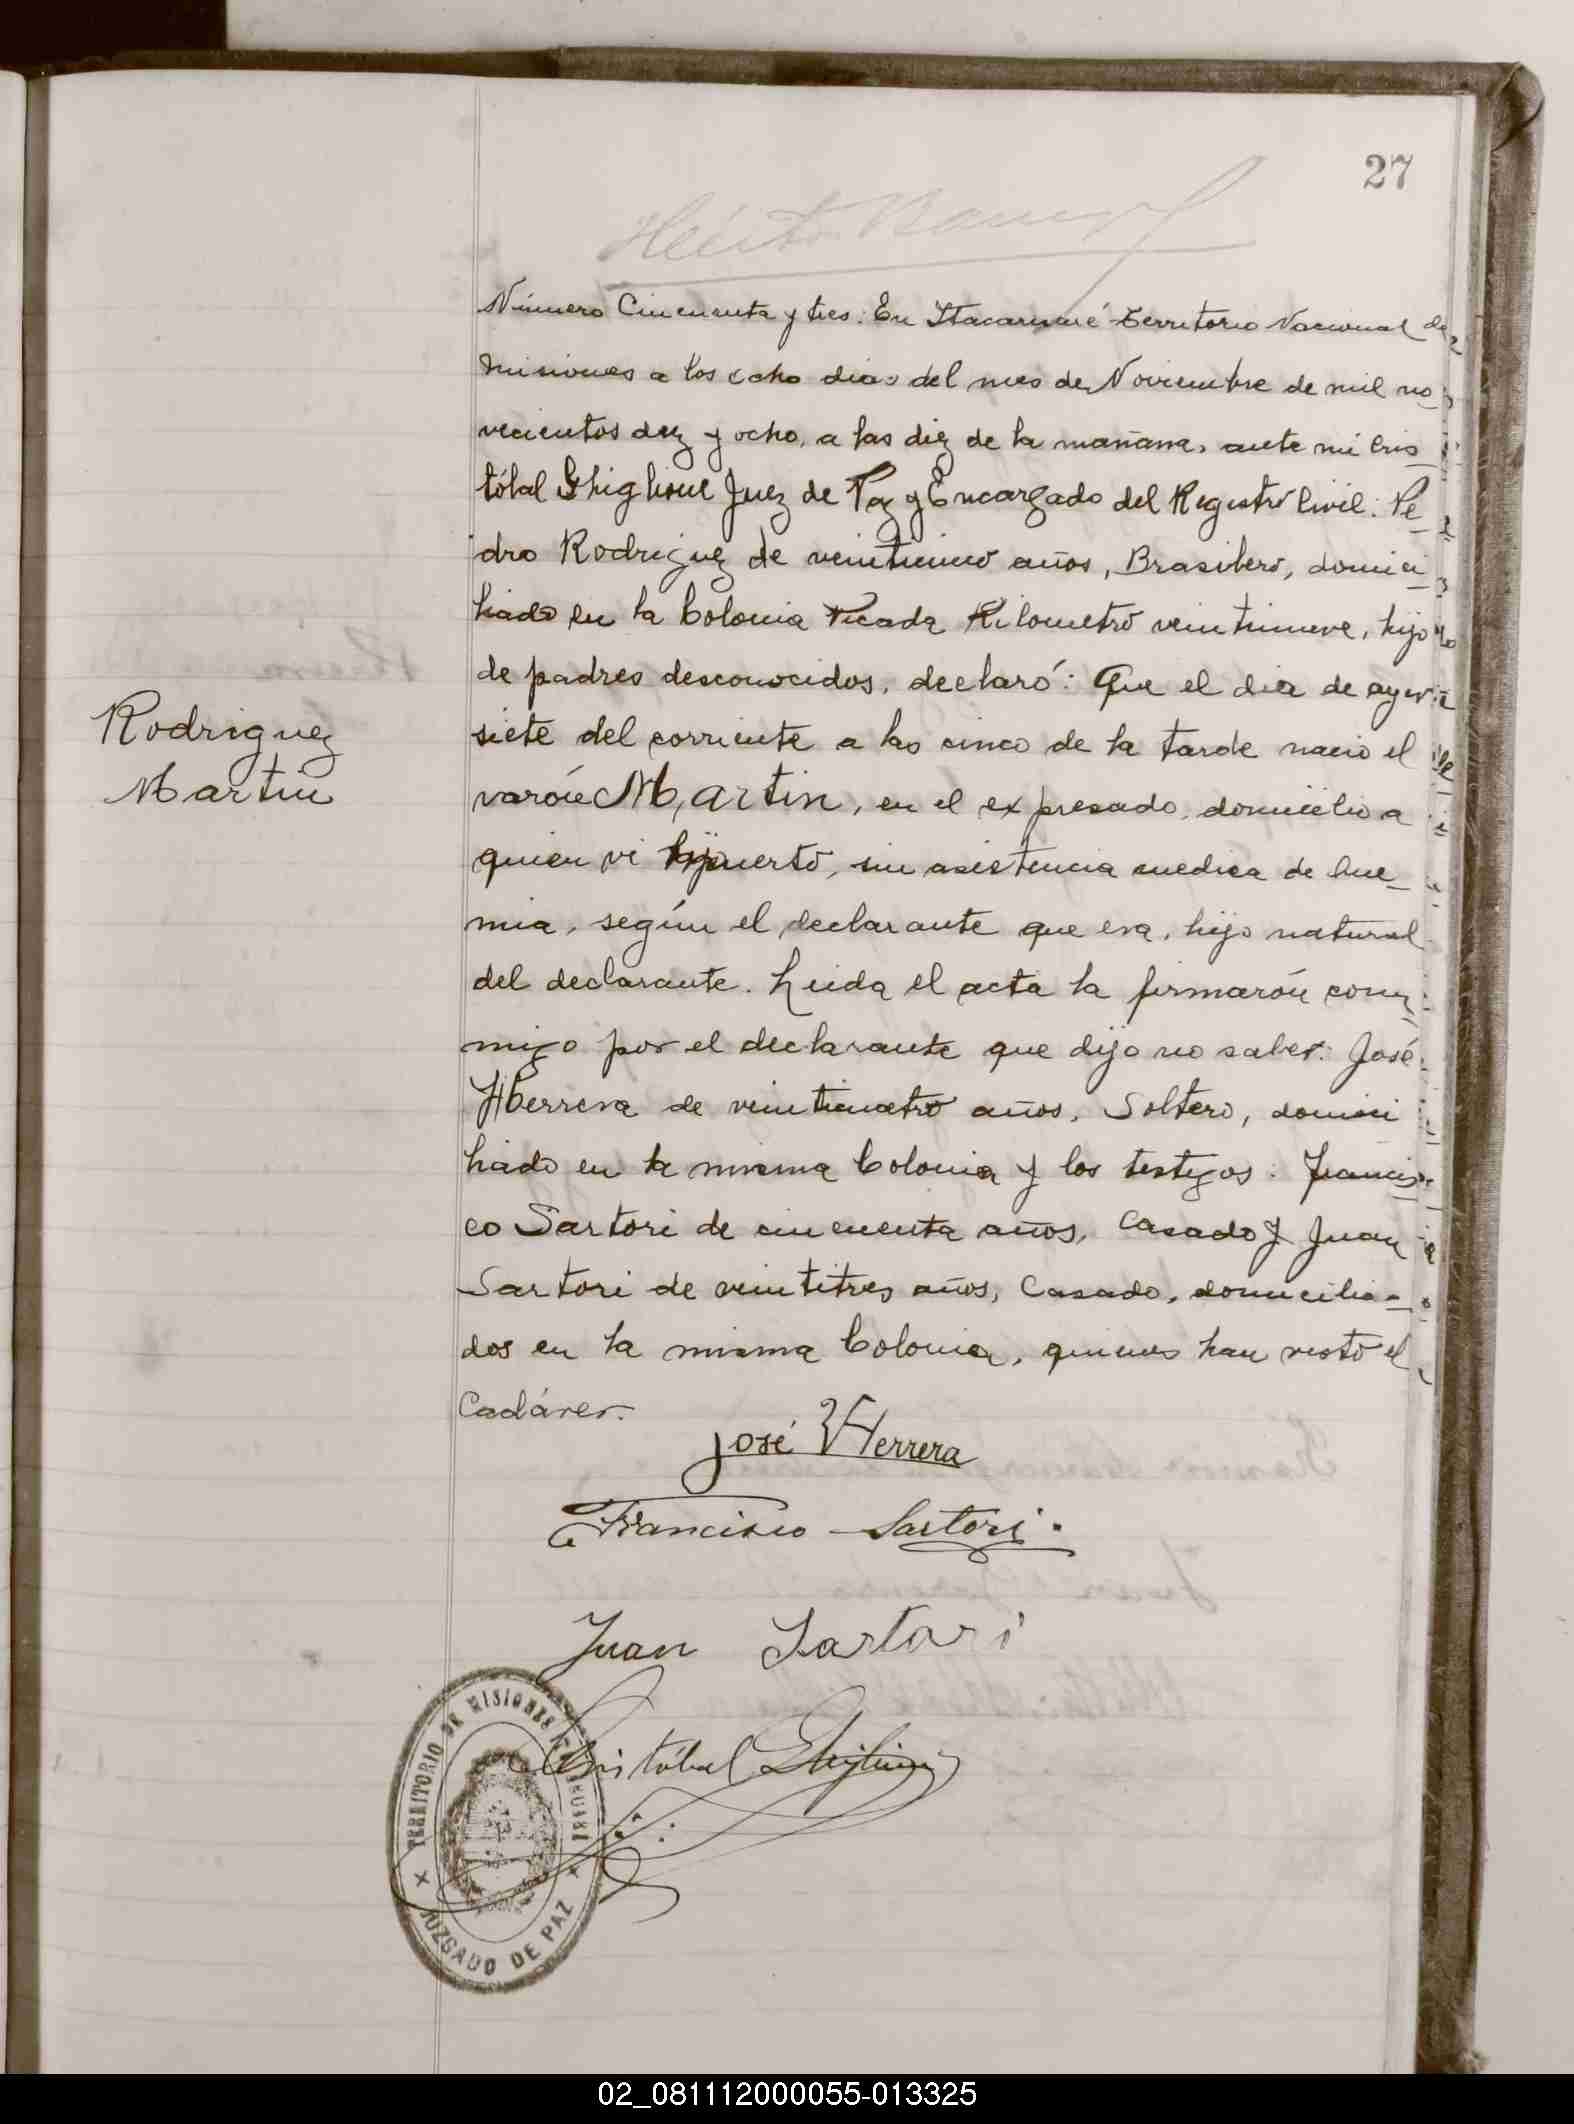 27
Número Cincuenta y tres: En Itacaruaré Territorio Nacional de
Misiones a los ocho dias del mes de Noviembre de mil no-
vecientos diez y ocho, a las diez de la mañana, ante mi Cris-
tóbal Ghiglione Juez de Paz y Encargado del Registro Civil: Pe-
dro Rodriguez de años, Brasilero, domici-
liado en la Colonia Picada Kilometro veintinueve, hijo
de padres desconocidos, declaró: Que el dia de ayer
siete del corriente a las cinco de la tarde nacio el
Rodriguez
Martin
varón Martin, en el expresado domicilio a
quien vi muerto, sin asistencia medica de
mia, según el declarante que era, hijo natural
del declarante. Leida el acta la firmarón con-
migo por el declarante que dijo no saber: José
Herrera de veinticuatro años, Soltero, domici
liado en la misma Colonia y los testigos: Francis-
co Sartori de cincuenta años, Casado y Juan
Sartori de veintitres años, Casado, domicilia-
dos en la misma Colonia, quienes han visto el
Cadáver.
José Herrera
Francisco Sartori.
Juan Sartori
Cristóbal Ghiglione
TERRITORIO DE MISIONES
JUZGADO DE PAZ
02_081112000055-013325